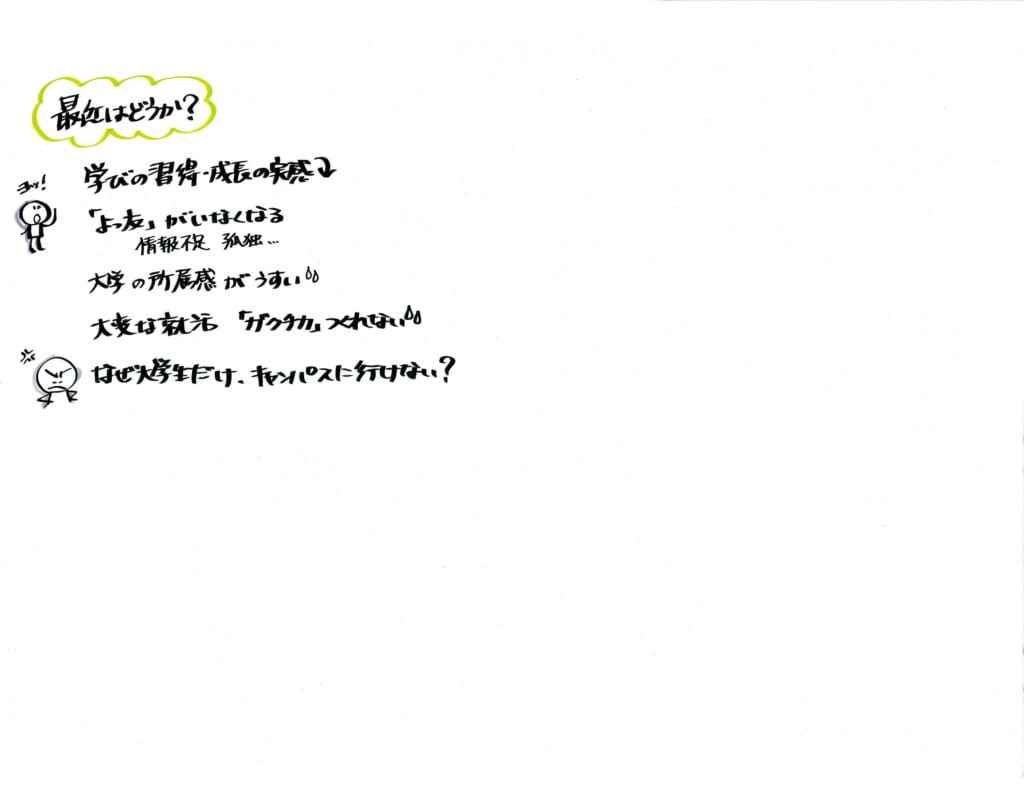 最近はどうか?
学びの習得・成長の実感↴
ヨッ!
「よっ友」がいなくなる
情報不足 孤独…
大学の所属感がうすい
大変な就活 「ガクチカ」つくれない
なぜ大学生だけ、キャンパスに行けない?